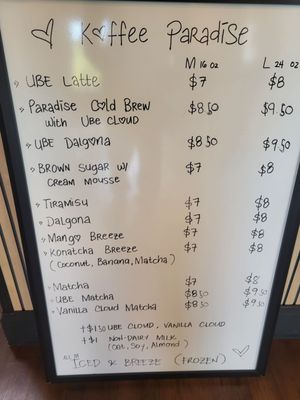 ♡ Koffee Paradise
M 16 oz L 24 oz
» Ube Latte $7 $8
» Paradise Cold Brew $8.50 $9.50
with Ube Cloud
» Ube Dalgona $8.50 $9.50
» Brown Sugar w/ $7 $8
Cream Mousse
» Tiramisu $7 $8
» Dalgona $7 $8
» Mango Breeze $7 $8
» Konatcha Breeze $7 $8
(Coconut, Banana, Matcha)
» Matcha $7 $8
» Ube Matcha $8.50 $9.50
» Vanilla Cloud Matcha $8.50 $9.50
+$1.50 Ube Cloud, Vanilla Cloud
+$1 Non-Dairy Milk
(Oat, Soy, Almond)
Iced & Breeze (Frozen) ♡